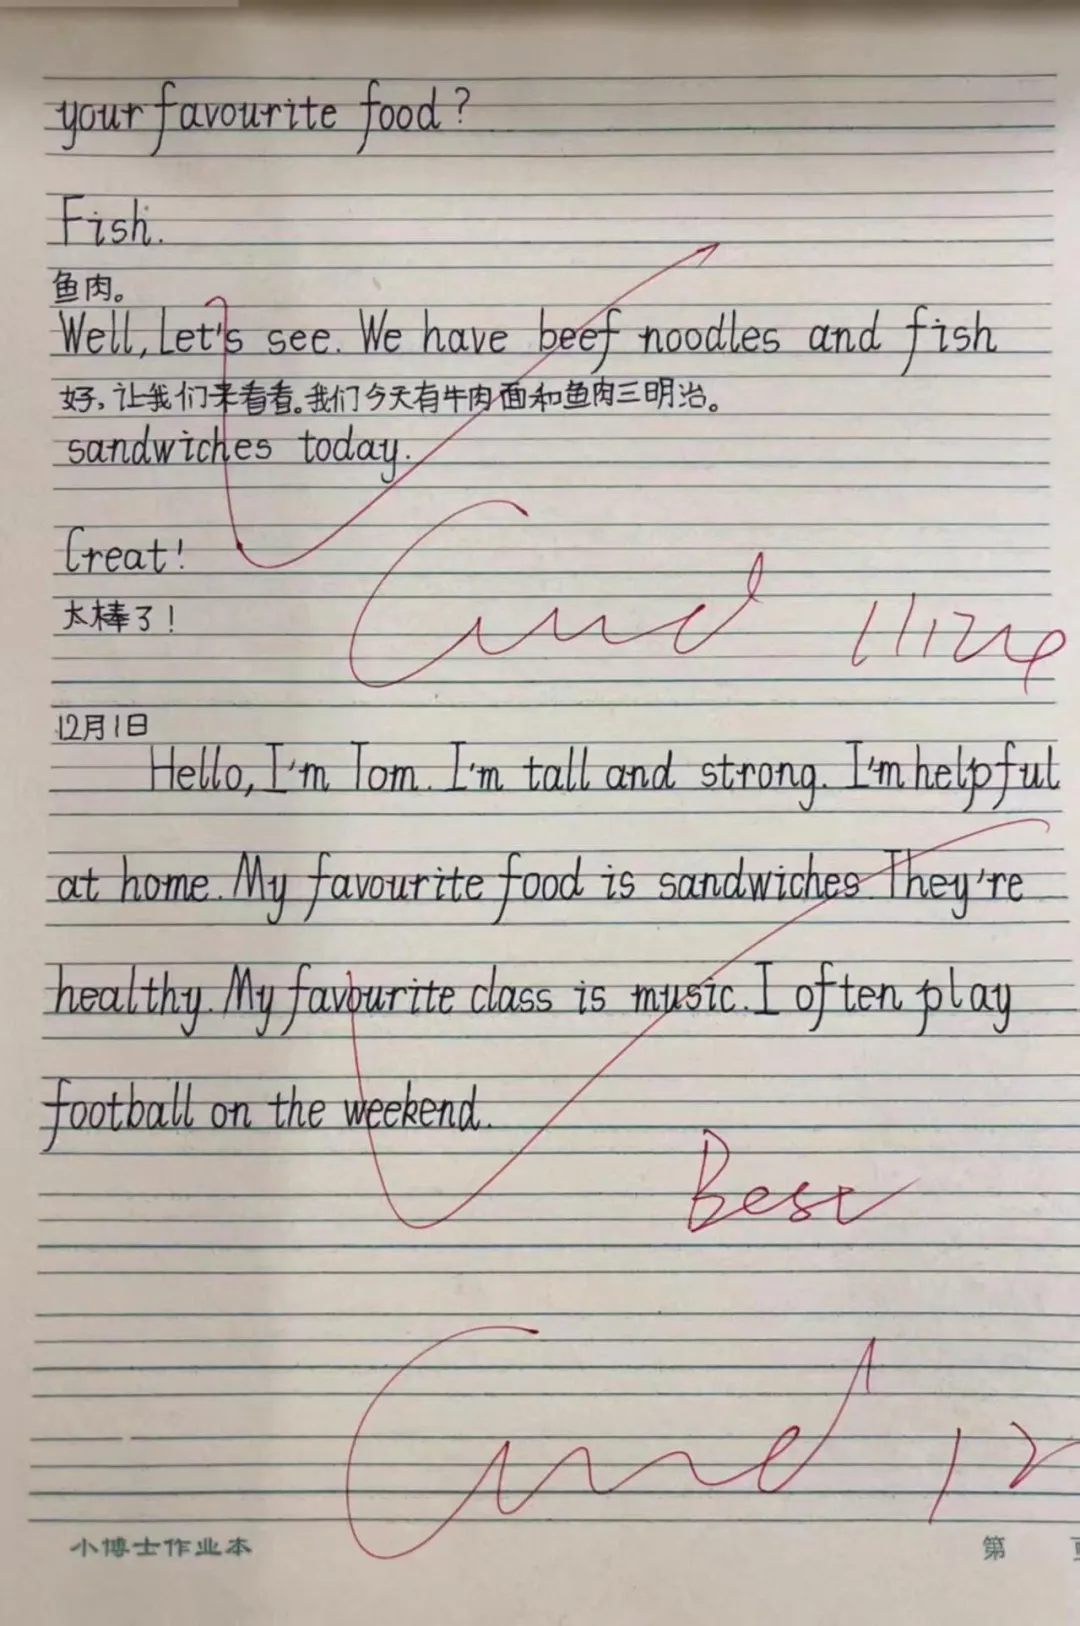 your favourite food?
Fish.
鱼肉。
Well, Let's see. We have beef noodles and fish
好,让我们来看看。我们今天有牛肉面和鱼肉三明治。
sandwiches today.
Great!
太棒了!
12月1日
Hello, I'm Tom. I'm tall and strong. I'm helpful
at home. My favourite food is sandwiches. They're
healthy. My favourite class is music. I often play
football on the weekend.
Best
小博士作业本
第